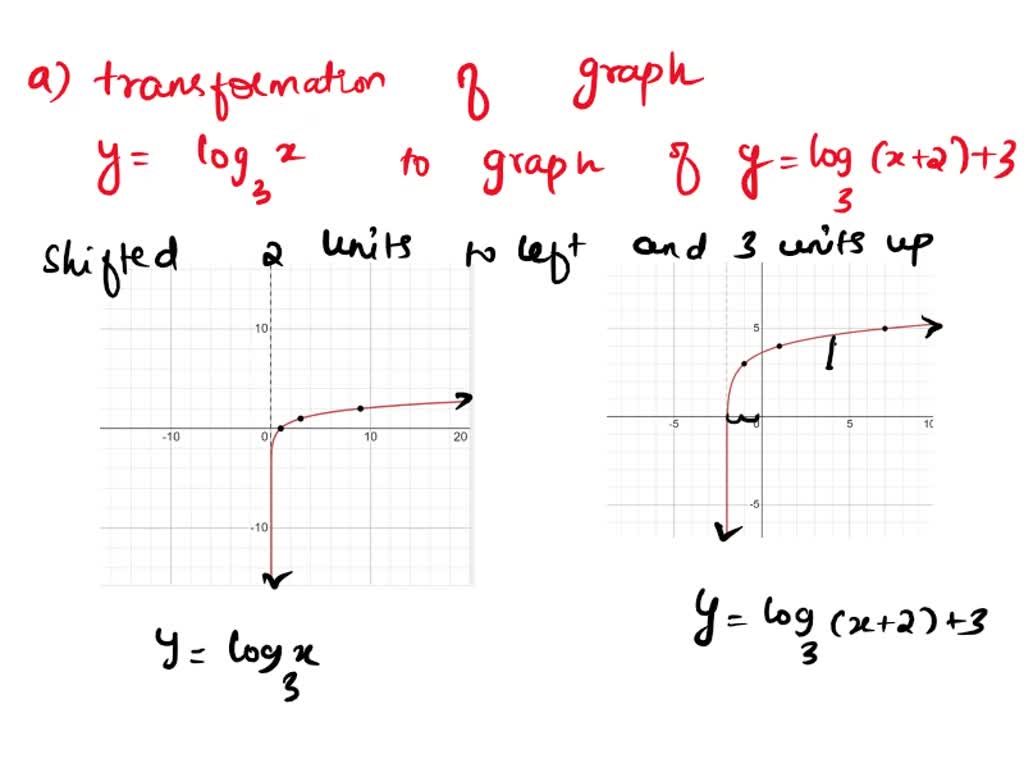 a) transformation of graph
y = log₃ x to graph of y = log₃ (x+2)+3
shifted 2 units to left and 3 units up
10
-10 0 10 20
-10
5
-5 0 5 10
-5
y = log₃ (x+2)+3
y = log₃ x